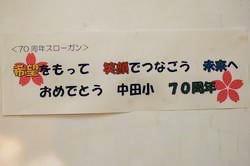 ＜70周年スローガン＞
希望をもって　笑顔でつなごう　未来へ
おめでとう　中田小　７０周年